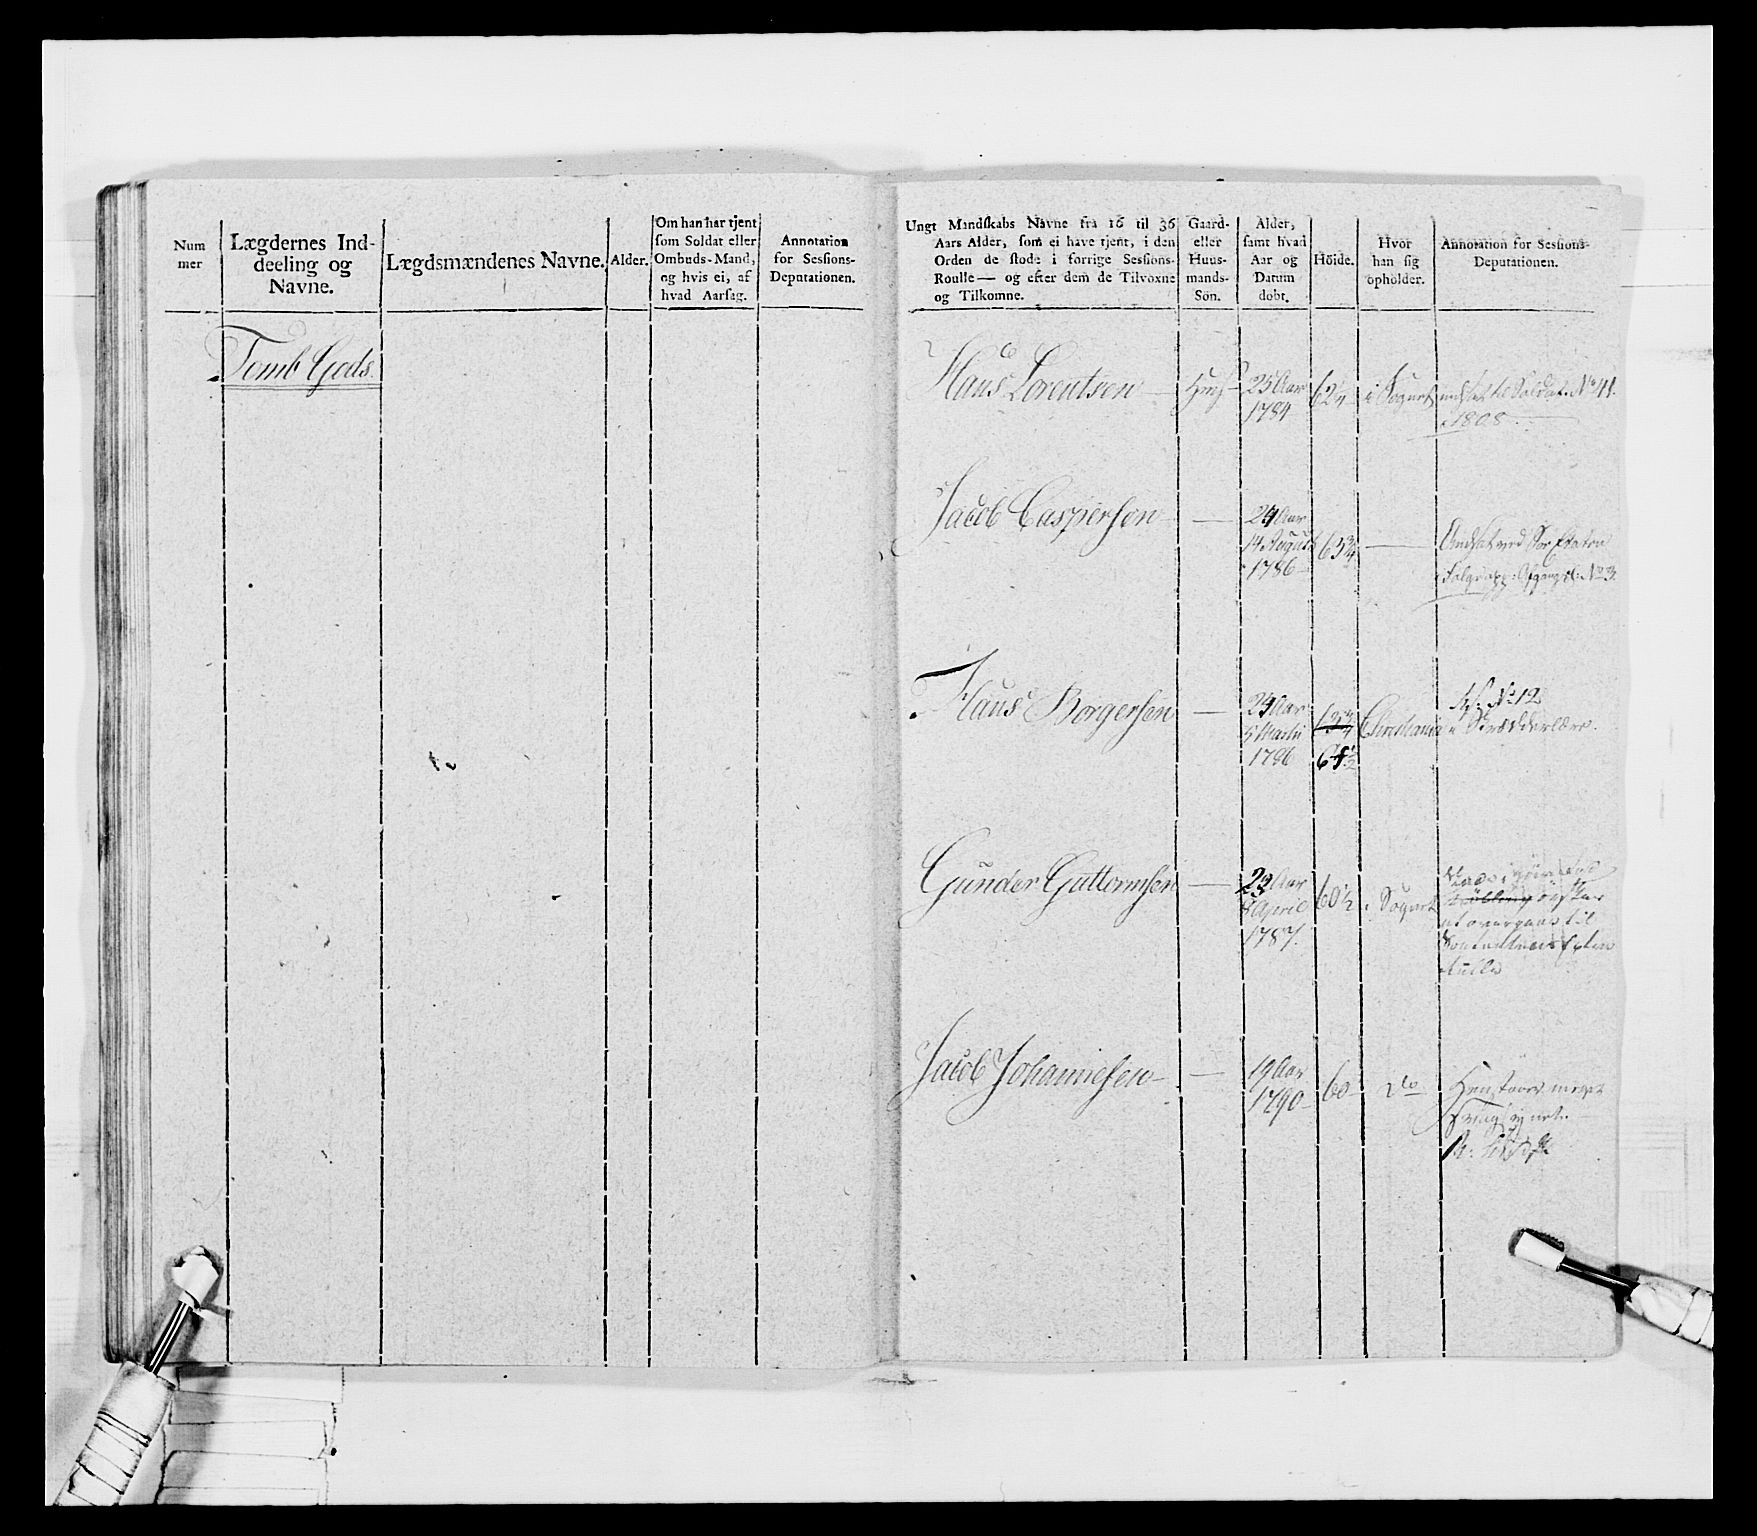 Num
mer
Lægdernes Ind-
deeling og
Navne.
Lægdsmændenes Navne.
Alder.
Om han har tjent
som Soldat eller
Ombuds-Mand,
og hvis ei, af
hvad Aarsag.
Annotation
for Sessions-
Deputationen.
Tomb Gods.
Ungt Mandskabs Navne fra 16 til 36
Aars Alder, som ei have tjent, i den
Orden de stode i forrige Sessions-
Roulle — og efter dem de Tilvoxne
og Tilkomne.
Gaard-
eller
Huus-
mands-
Sön.
Alder,
samt hvad
Aar og
Datum
dobt.
Höide.
Hvor
han sig
opholder.
Annotation for Sessions-
Deputationen.
Hans Lorentsen
25 Aar
1784
62 1/4
i Sognet
til Soldat. No 41.
1808.
Jacob Caspersen —
24 Aar
14 August
1786
63 3/4
—
No 3.
Hans Borgersen —
24 Aar
5 Martii
1786
63 3/4
64 1/2
Christiania
No 12
i Skrædderlære.
Gunder Guttormsen —
23 Aar
8 April
1787.
60 1/2
i Sognet
at overgaae til
rulle
Jacob Johannesen —
19 Aar
1790
60
do
meget